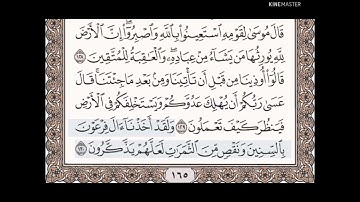 KINEMASTER
قَالَ مُوسَىٰ لِقَوْمِهِ ٱسْتَعِينُوا۟ بِٱللَّهِ وَٱصْبِرُوٓا۟ إِنَّ ٱلْأَرْضَ
لِلَّهِ يُورِثُهَا مَن يَشَآءُ مِنْ عِبَادِهِۦ وَٱلْعَٰقِبَةُ لِلْمُتَّقِينَ ١٢٨
قَالُوٓا۟ أُوذِينَا مِن قَبْلِ أَن تَأْتِيَنَا وَمِنۢ بَعْدِ مَا جِئْتَنَا قَالَ
عَسَىٰ رَبُّكُمْ أَن يُهْلِكَ عَدُوَّكُمْ وَيَسْتَخْلِفَكُمْ فِى ٱلْأَرْضِ
فَيَنظُرَ كَيْفَ تَعْمَلُونَ ١٢٩ وَلَقَدْ أَخَذْنَآ ءَالَ فِرْعَوْنَ
بِٱلسِّنِينَ وَنَقْصٍ مِّنَ ٱلثَّمَرَٰتِ لَعَلَّهُمْ يَذَّكَّرُونَ ١٣٠
١٦٥